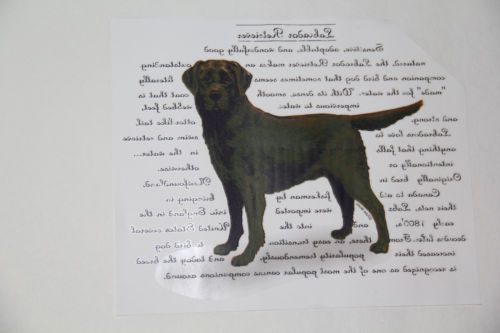 Labrador Retriever
Sensitive, adaptable, and wonderfully good
natured, the Labrador Retriever makes an outstanding
companion and bird dog that sometimes seems literally
"made" for the water. With its dense, smooth coat that is
impervious to water, webbed feet,
and strong, otter like tail
Labradors love to swim and retrieve
anything that falls in the water...
intentionally or otherwise.
Originally bred in Newfoundland,
Canada to aid fisherman by bringing in
their nets, Labs were imported into England in the
early 1800's. and into the United States several
decades later. From there, an easy transition to bird dog
increased their popularity tremendously, and today the breed
is recognized as one of the most popular canine companions around.